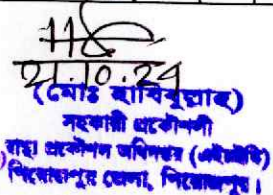 21.10.24
(মোঃ হাবিবুল্লাহ)
সহকারী প্রকৌশলী
স্বাস্থ্য প্রকৌশল অধিদপ্তর (এইচইডি)
পিরোজপুর জেলা, পিরোজপুর।